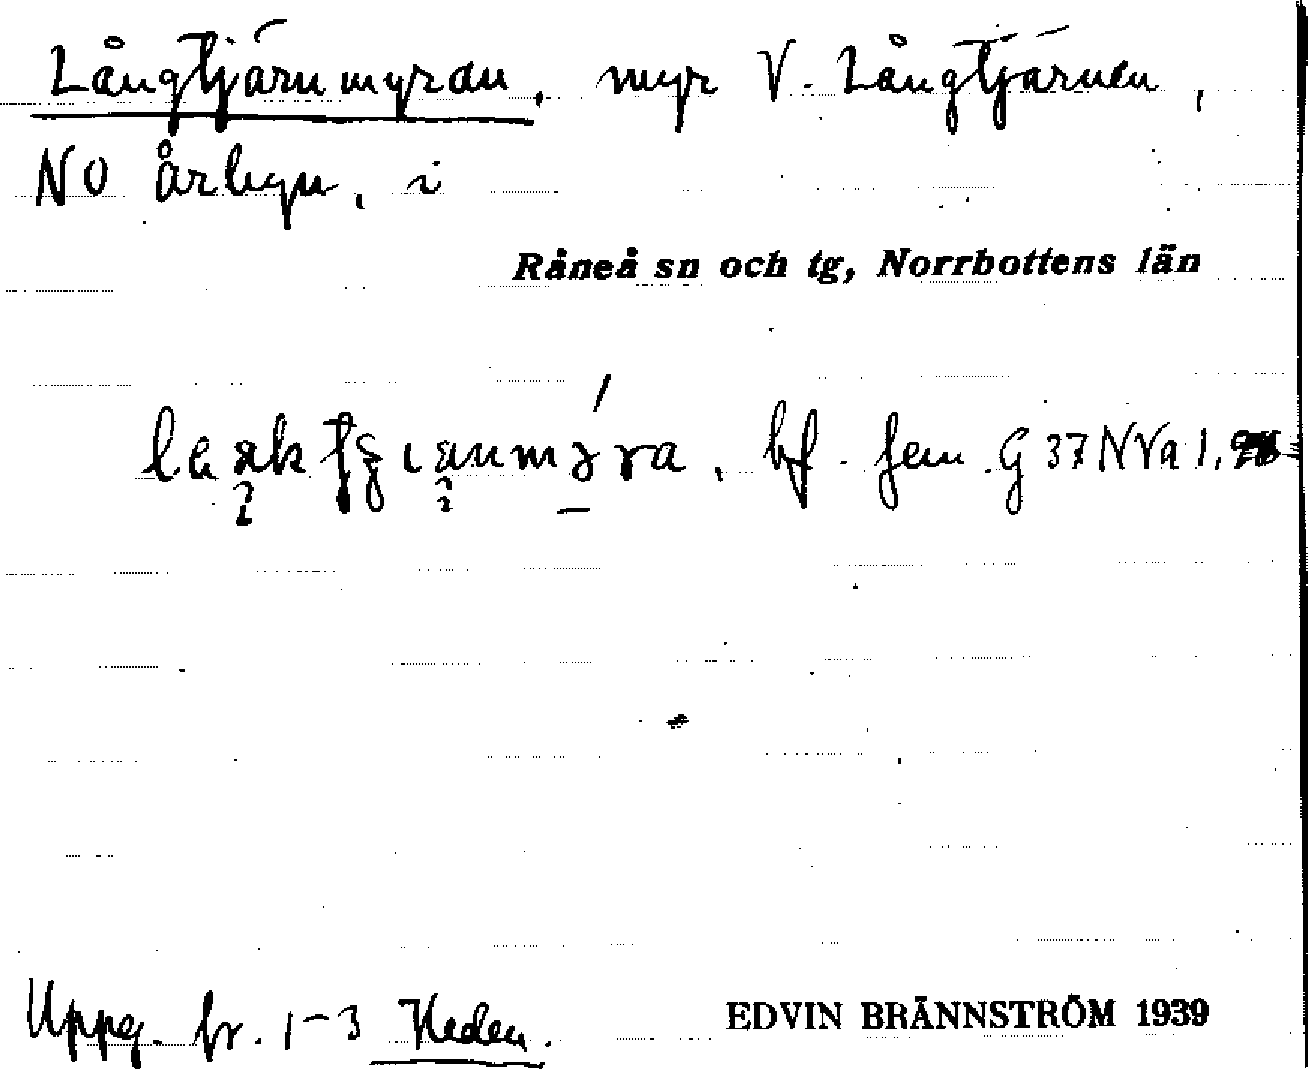 Långtjärnmyran, myr V. Långtjärnen,
NO Årbyn, i
Råneå sn och tg, Norrbottens län
bf. fem. G 37 NVa 1.
Uppg. fr. 1-3 Heden.
EDVIN BRÄNNSTRÖM 1939